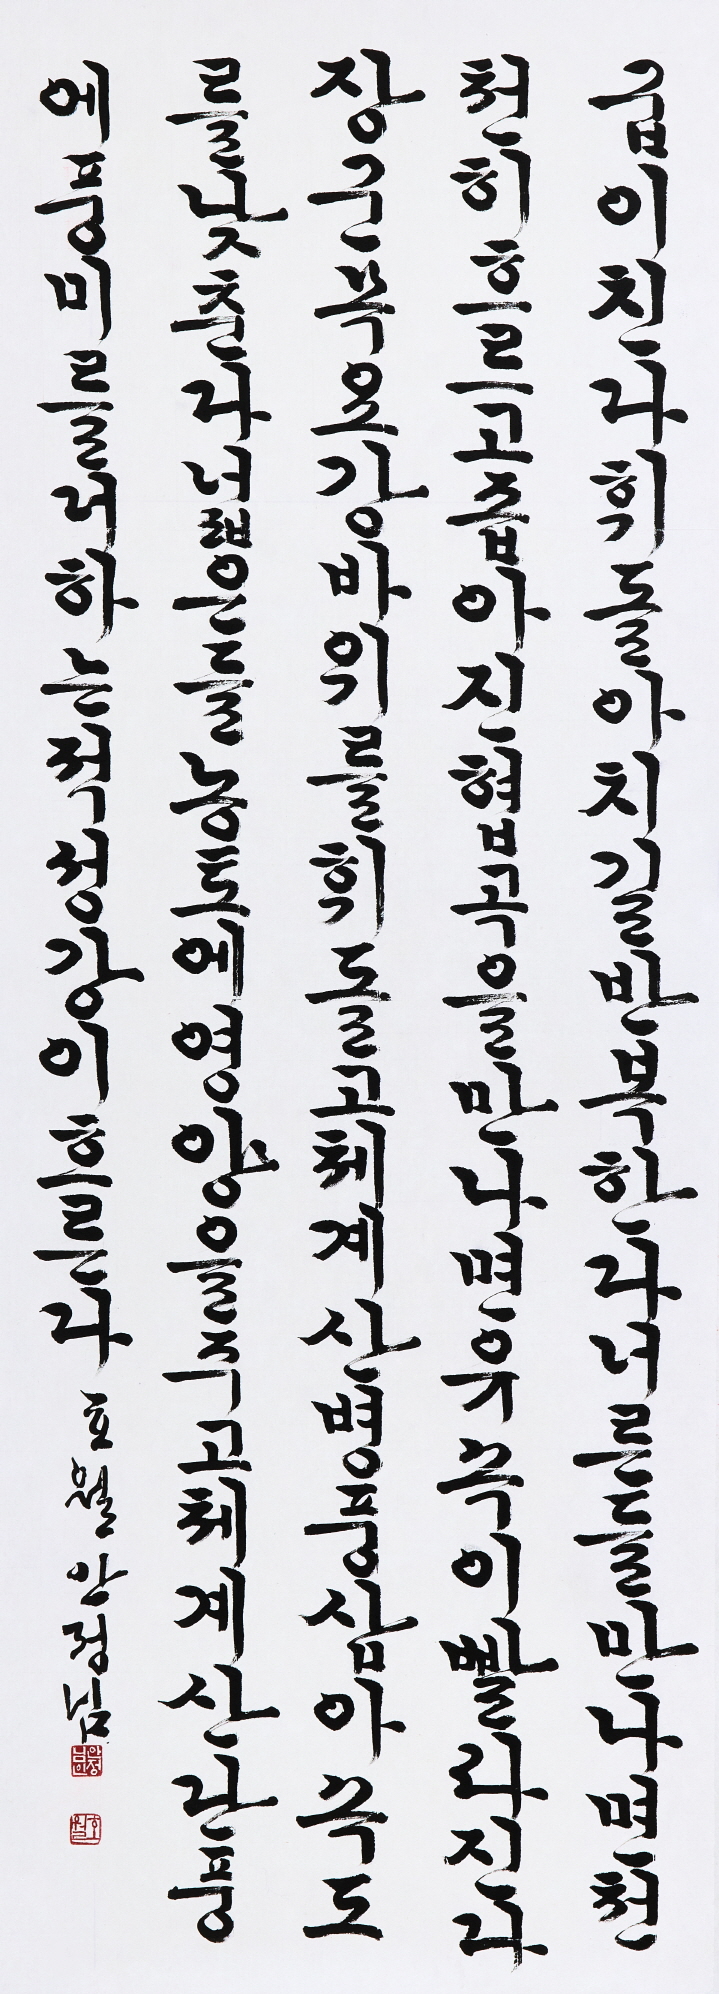 굽이친다휘돌아치길반복한다너른들만나면천
천히흐르고좁아진협곡을만나면유속이빨라진다
장군목요강바위를휘돌고체계산병풍삼아속도
를낮춘다너럷은들농토에영양을주고체계산단풍
에풍미를더하는적성강이흐른다 호월 안정님